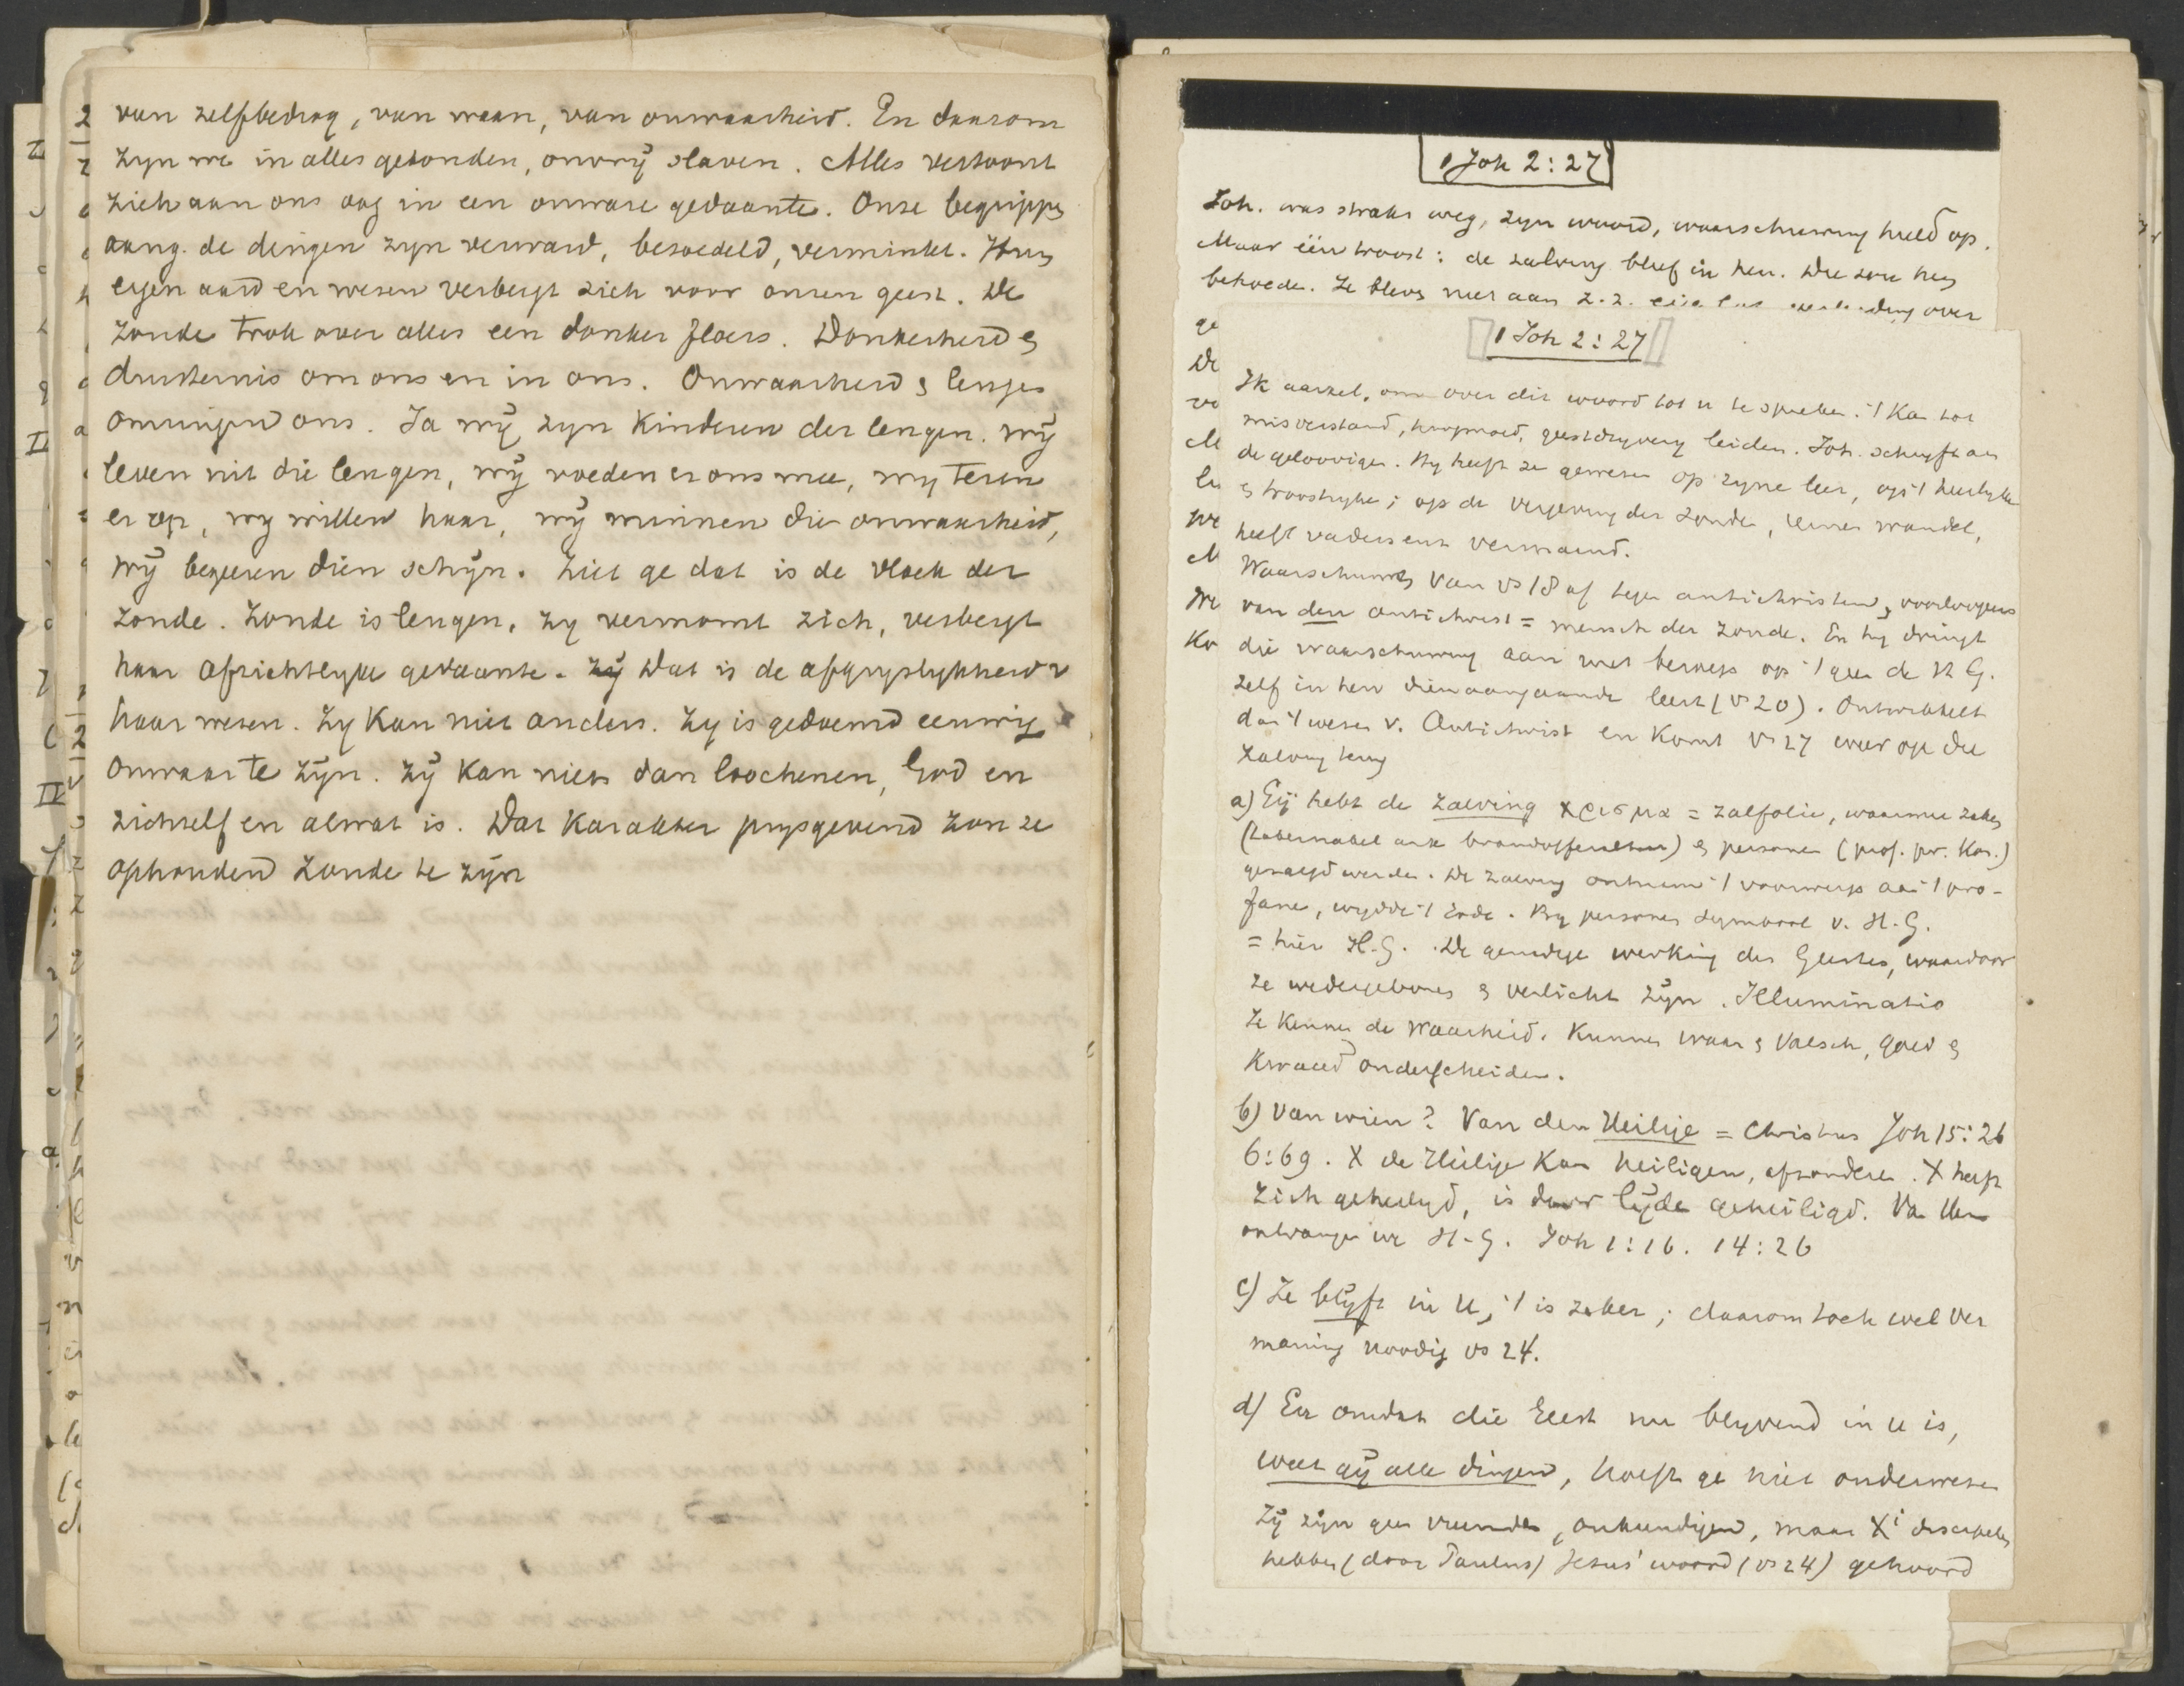 van zelfbedrog, van waan, van onwaarheid. En daarom
zyn we in alles gebonden, onvrÿ slaven. Alles vertoont
zich aan ons oog in een onware gedaante. Onze begrippen
aang. de dingen zyn verward, besoedeld, verminkt. Hun
eigen aard en wezen verbergt zich voor onzen geest. De
zonde trok over alles een donker floers. Donkerheid &
duisternis om ons en in ons. Onwaarheid & leugen
omringen ons. Ja wÿ zyn Kinderen der leugen. wÿ
leven uit die leugen, wÿ voeden er ons mee, wy teren
er op, wy willen haar, wÿ minnen die onwaarheid,
wÿ begeeren dien schÿn. Ziet ge dat is de vloek der
zonde. Zonde is leugen, zy vermomt zich, verbergt
haar afzichtlyke gedaante. Dat is de afgryslykheid v
haar wezen. Zy Kan niet anders. Zy is gedoemd eeuwig
onwaar te zÿn. Zÿ Kan niets dan loochenen, God en
zichzelf en alwat is. Dat Karakter prysgevend zou ze
ophouden zonde te zÿn
1 Joh 2:27
Joh. was straks weg, zyn woord, waarschuwing hield op.
Maar één troost: de zalving bleef in hen. Die zou hen
behoeden. Ze bleven niet aan z.z. over
1 Joh 2:27
Ik aarzel, om over dit woord tot u te spreken. 't Kan tot
misverstand, hoogmoed, geestdryvery leiden. Joh. schryft aan
de geloovigen. Hy heeft ze gewezen op zyne leer, op 't heerlyke
& troostryke; op de vergeving der zonden, reinen wandel,
heeft vaders enz vermaand.
Waarschuwt van vs 18 af tegen antichristen, voorloopers
van den antichrist = mensch der zonde. En hy dringt
die waarschuwing aan met beroep op 't geen de H G.
zelf in hen dienaangaande leert (vs 20). Ontwikkelt
dan 't wezen v. Antichrist en Komt vs 27 weer op die
zalving terug
a) Gÿ hebt de zalving χρισμα = zalfolie, waarmee zaken
(tabernakel ark brandofferaltaar) & personen (prof. pr. Kon.)
gezalfd werden. De zalving ontnam 't voorwerp aan 't pro-
fane, wydde 't Gode. By personen symbool v. H. G.
= hier H. G. De genadige werking des Geestes, waardoor
ze wedergeboren & verlicht zÿn. Illuminatio
Ze Kennen de Waarheid. Kunnen waar & valsch, goed &
Kwaad onderscheiden.
b) Van wien? Van den Heilige = Christus Joh 15:26
6:69. X de Heilige Kan heiligen, afzonderen. X heeft
zich geheiligd, is door lÿden geheiligd. Van Hem
ontvangen we H. G. Joh 1:16. 14:26
c) Ze blÿft in U, 't is zeker; daarom toch wel ver
maning noodig vs 24.
d) En omdat die Geest nu blyvend in u is,
weet gÿ alle dingen, hoeft ge niet onderwezen
Zÿ zÿn geen vreemden, onkundigen, maar Xi discipelen
hebben (door Paulus) Jesus' woord (vs 24) gehoord